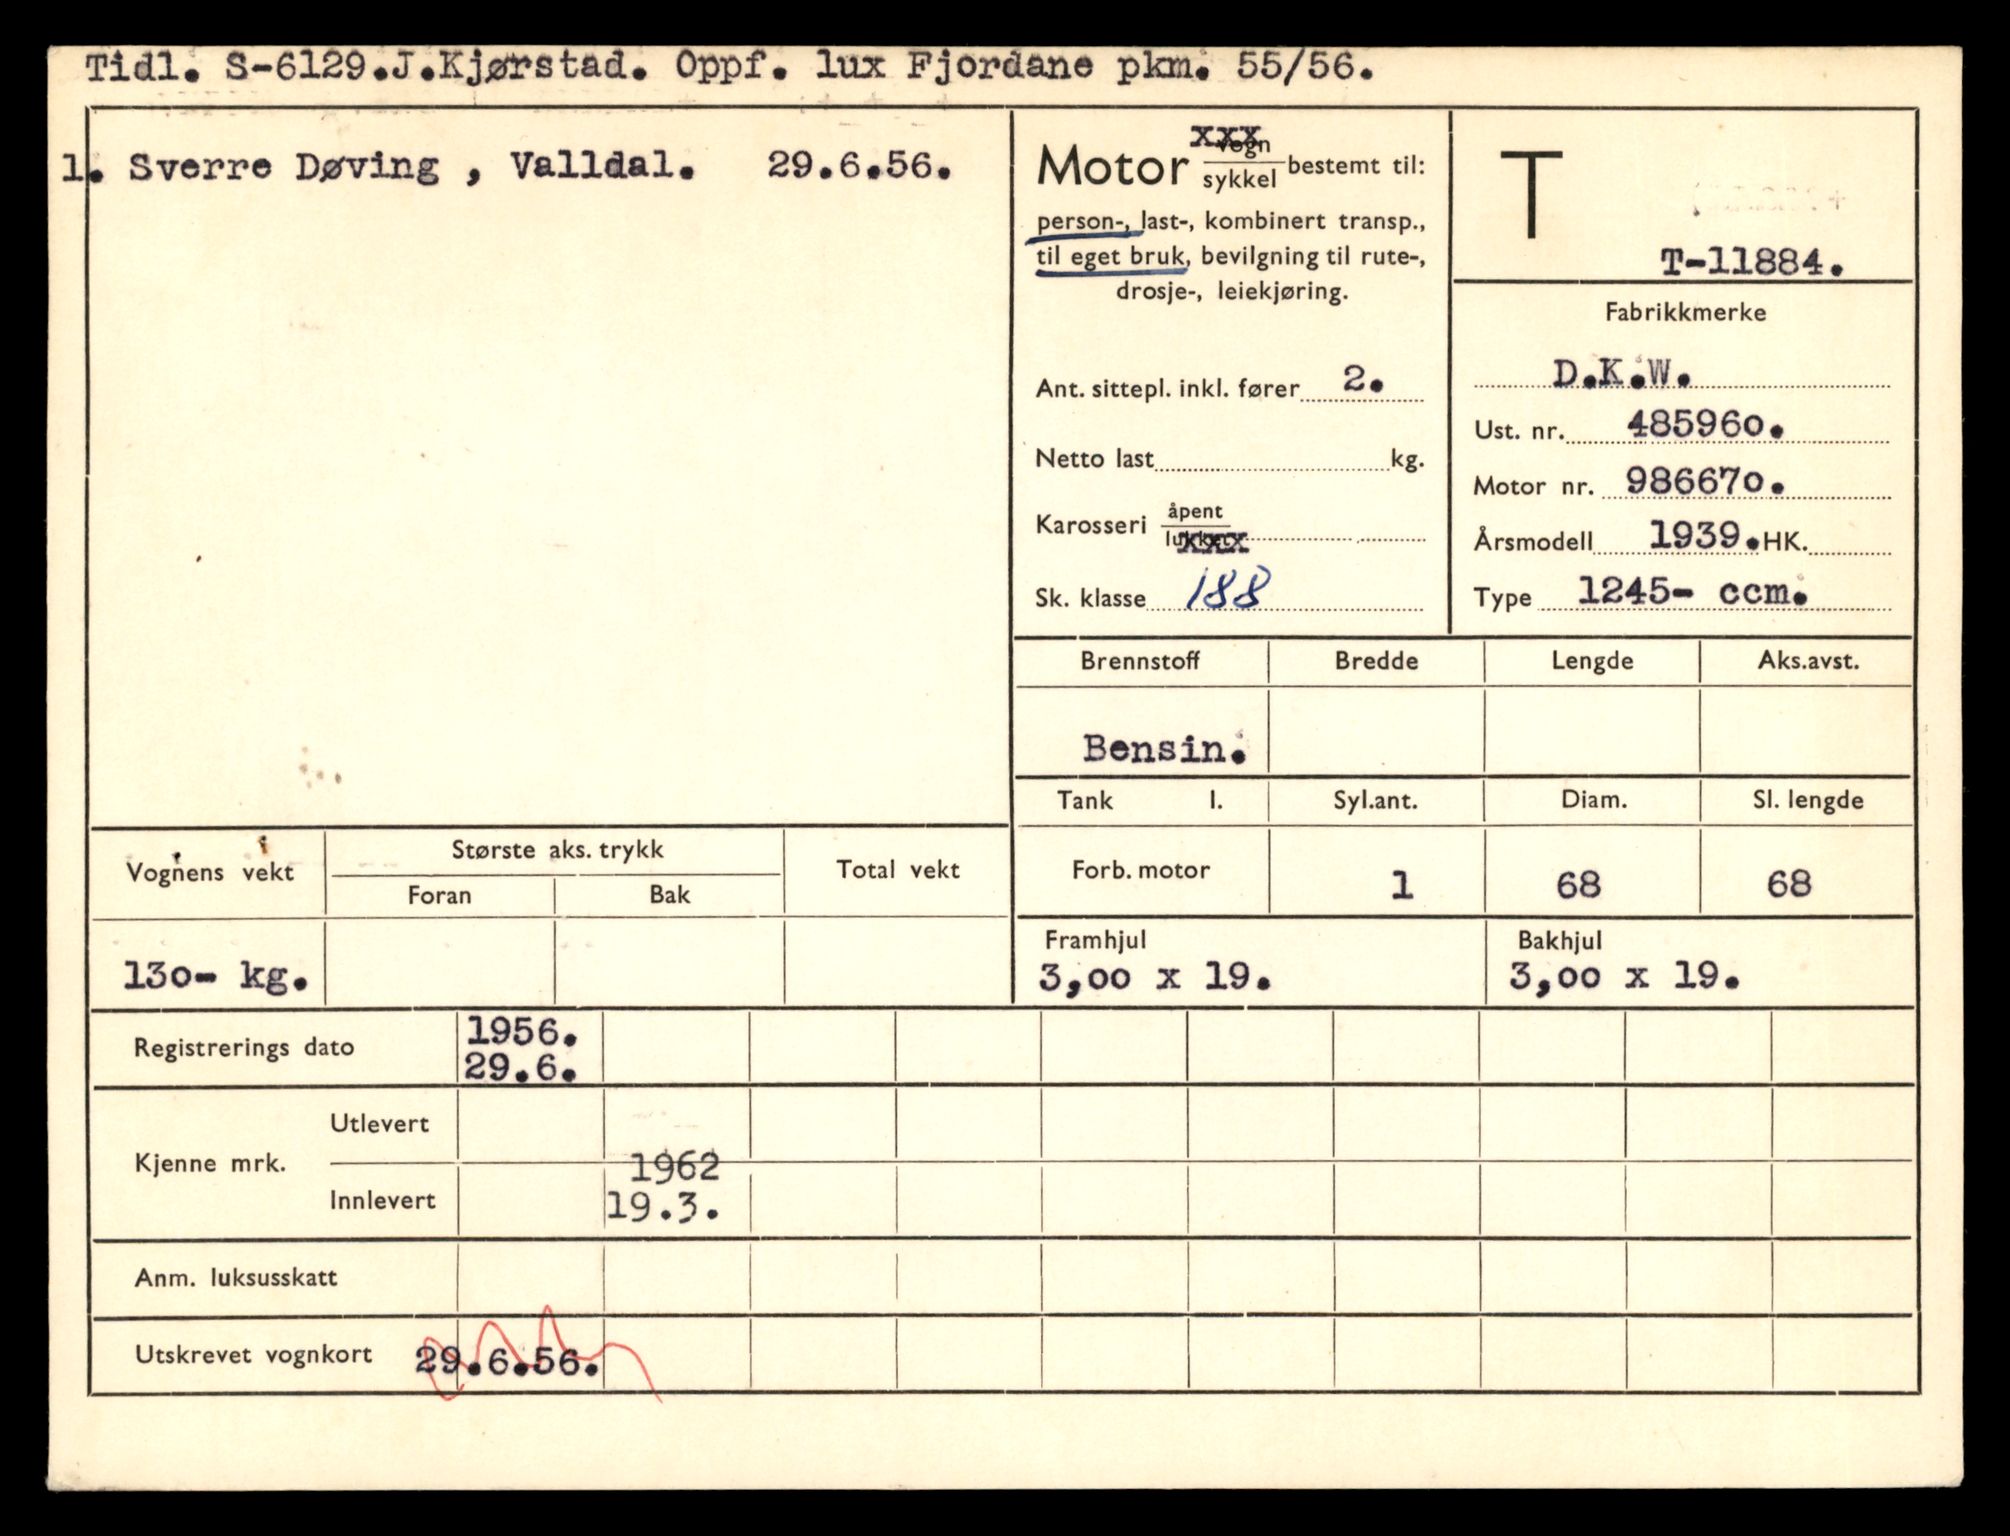 Tidl. S-6129.J.Kjørstad. Oppf. lux Fjordane pkm. 55/56.
1. Sverre Døving , Valldal. 29.6.56.
Motor vogn xxx
sykkel bestemt til:
person-, last-, kombinert transp.,
til eget bruk, bevilgning til rute-,
drosje-, leiekjøring.
Ant. sittepl. inkl. fører 2.
Netto last kg.
Karosseri åpent
lukket xxx
Sk. klasse 188
T
T-11884.
Fabrikkmerke
D.K.W.
Ust. nr. 485960.
Motor nr. 986670.
Årsmodell 1939. HK.
Type 1245- ccm.
Brennstoff Bredde Lengde Aks.avst.
Bensin.
Tank l. Syl.ant. Diam. Sl. lengde
Forb. motor 1 68 68
Framhjul Bakhjul
3,00 x 19. 3,00 x 19.
Vognens vekt Største aks. trykk Total vekt
Foran Bak
130- kg.
Registrerings dato 1956.
29.6.
Kjenne mrk. Utlevert
Innlevert 1962
19.3.
Anm. luksusskatt
Utskrevet vognkort 29.6.56.